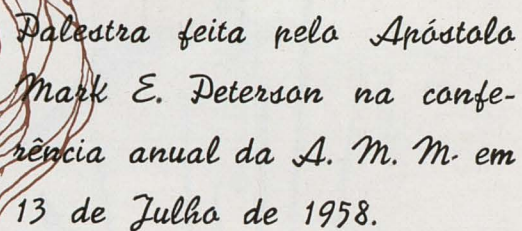 Palestra feita pelo Apóstolo
Mark E. Peterson na confe-
rência anual da A. M. M. em
13 de Julho de 1958.